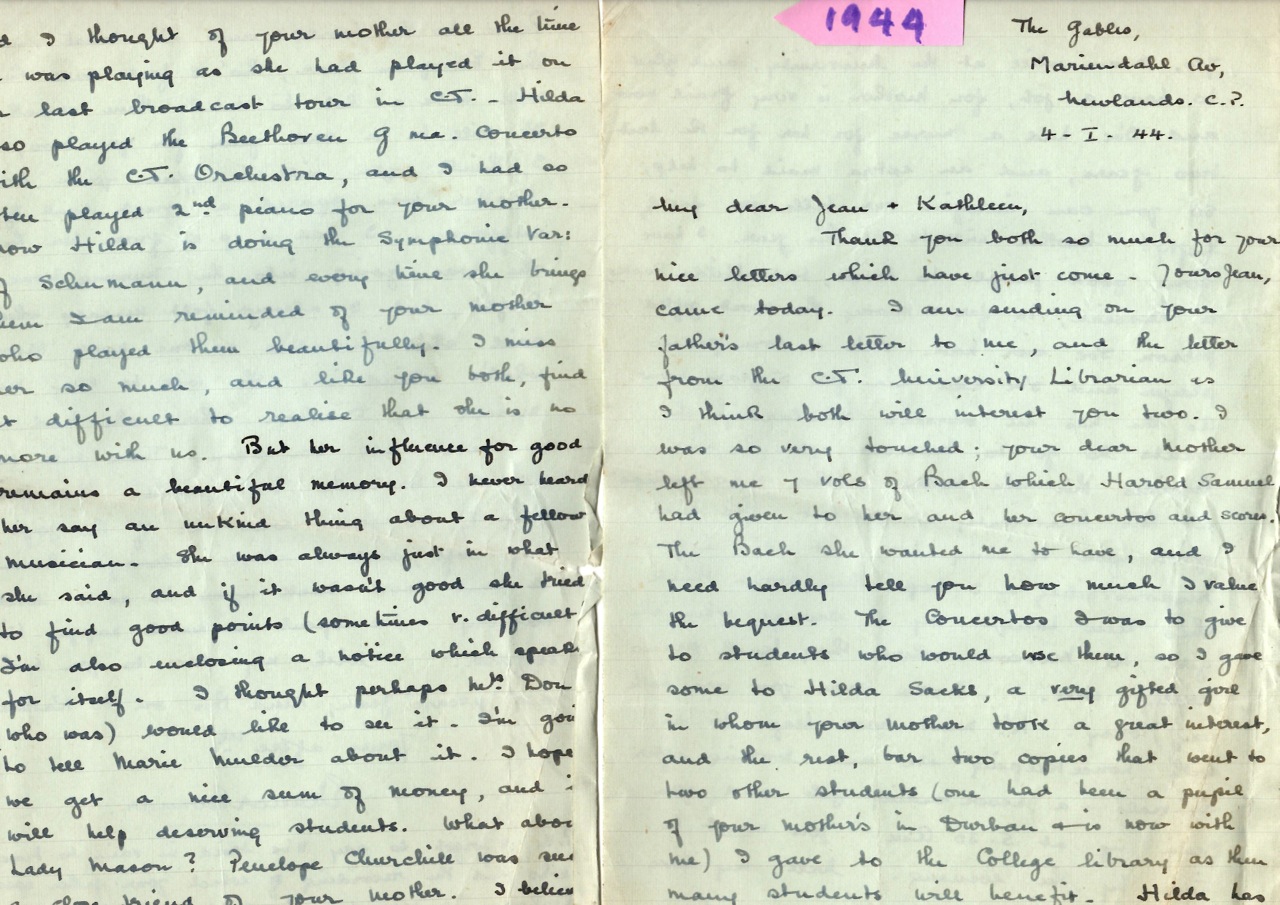 1944
The Gables,
Mariendahl Av,
Newlands. C.P.
4 - I - 44.
My dear Jean + Kathleen,
Thank you both so much for your
nice letters which have just come - Yours Jean,
came today. I am sending on your
father's last letter to me, and the letter
from the C.T. University Librarian as
I think both will interest you two. I
was so very touched; your dear mother
left me 7 vols of Bach which Harold Samuel
had given to her and her concertos and scores.
The Bach she wanted me to have, and I
need hardly tell you how much I value
the bequest. The Concertos I was to give
to students who would use them, so I gave
some to Hilda Sacks, a very gifted girl
in whom your mother took a great interest,
and the rest, bar two copies that went to
two other students (one had been a pupil
of your mother's in Durban + is now with
me) I gave to the College library as then
many students will benefit. Hilda has
I thought of your mother all the time
was playing as she had played it on
last broadcast tour in C.T. - Hilda
so played the Beethoven G ma. Concerto
ith the C.T. Orchestra, and I had so
ten played 2nd piano for your mother.
now Hilda is doing the Symphonic Var:
f Schumann, and every time she brings
hem I am reminded of your mother
who played them beautifully. I miss
er so much, and like you both, find
t difficult to realise that she is no
more with us. But her influence for good
remains a beautiful memory. I never heard
her say an unkind thing about a fellow
musician. She was always just in what
she said, and if it wasn't good she tried
to find good points (sometimes v. difficult
I'm also enclosing a notice which speak
for itself. I thought perhaps Mrs Don
who was) would like to see it. I'm goi
to tell Marie Mulder about it. I hope
we get a nice sum of money, and i
will help deserving students. What abou
Lady Mason? Penelope Churchill was su
close friend of your mother. I believ